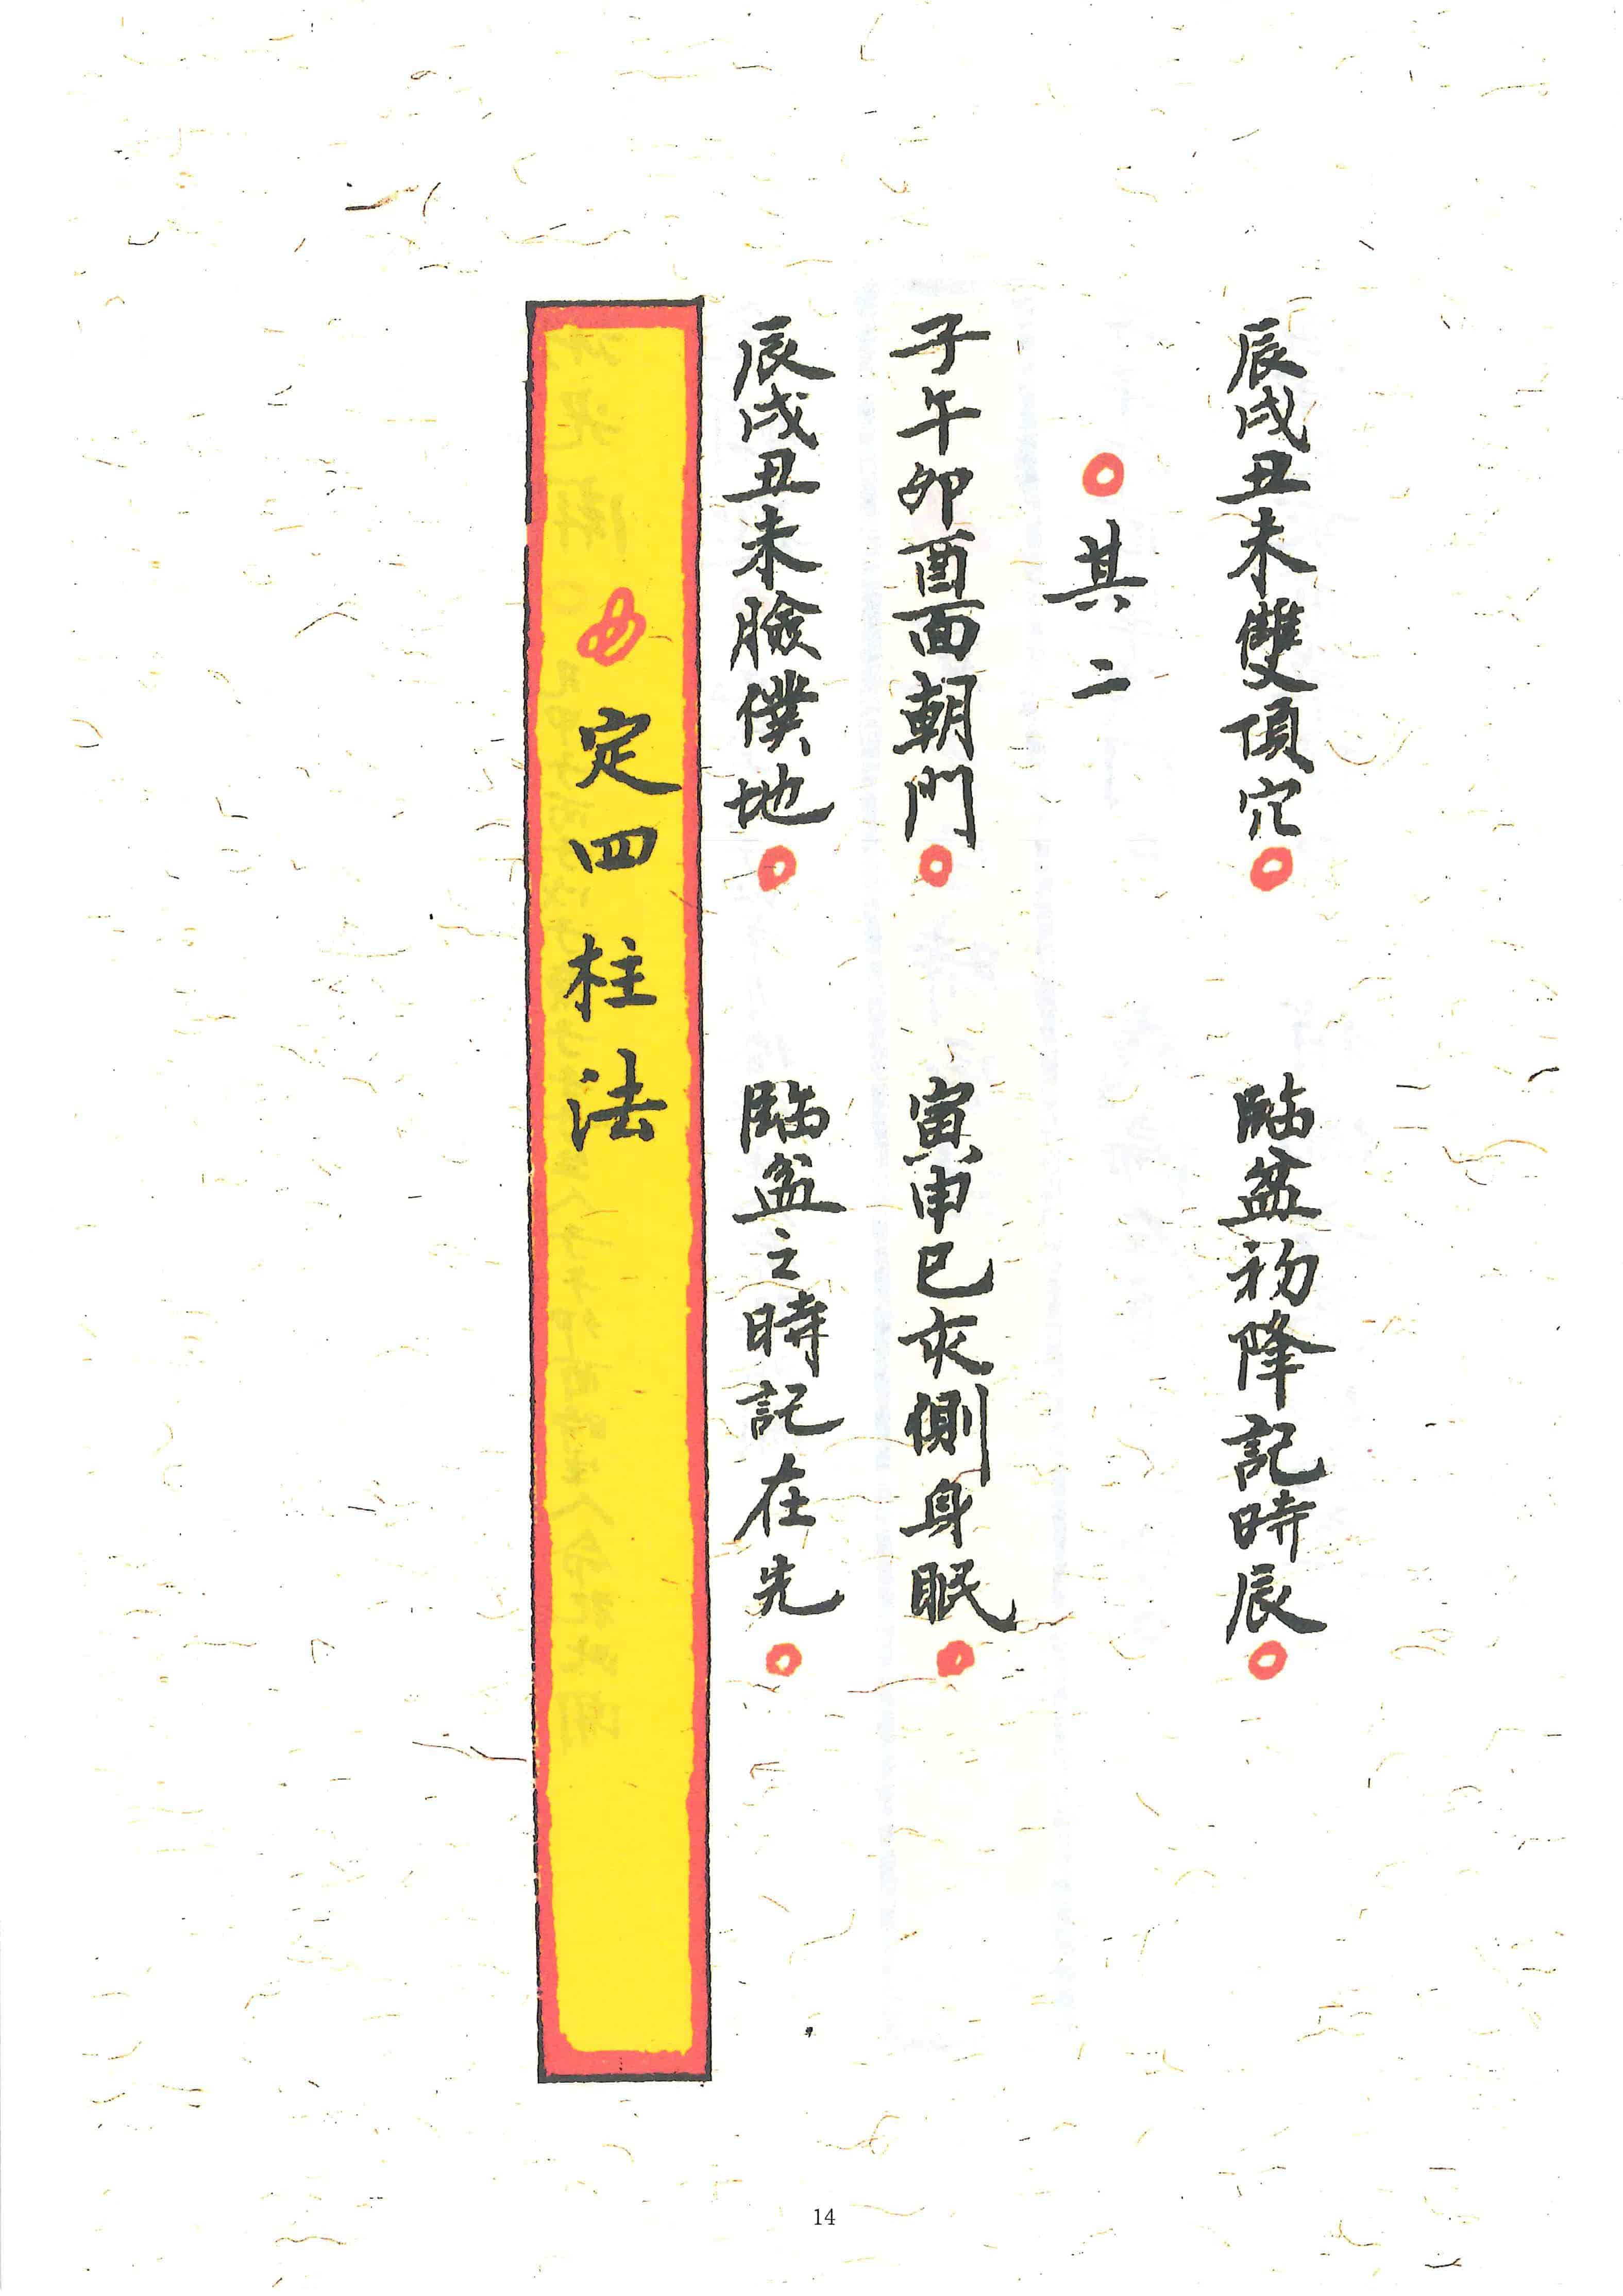 辰戌丑未雙頂穴○ 臨盆初降記時辰○
○其二
子午卯酉面朝門○ 寅申巳亥側身眠○
辰戌丑未臉僕地○ 臨盆之時記在先○
定四柱法
14